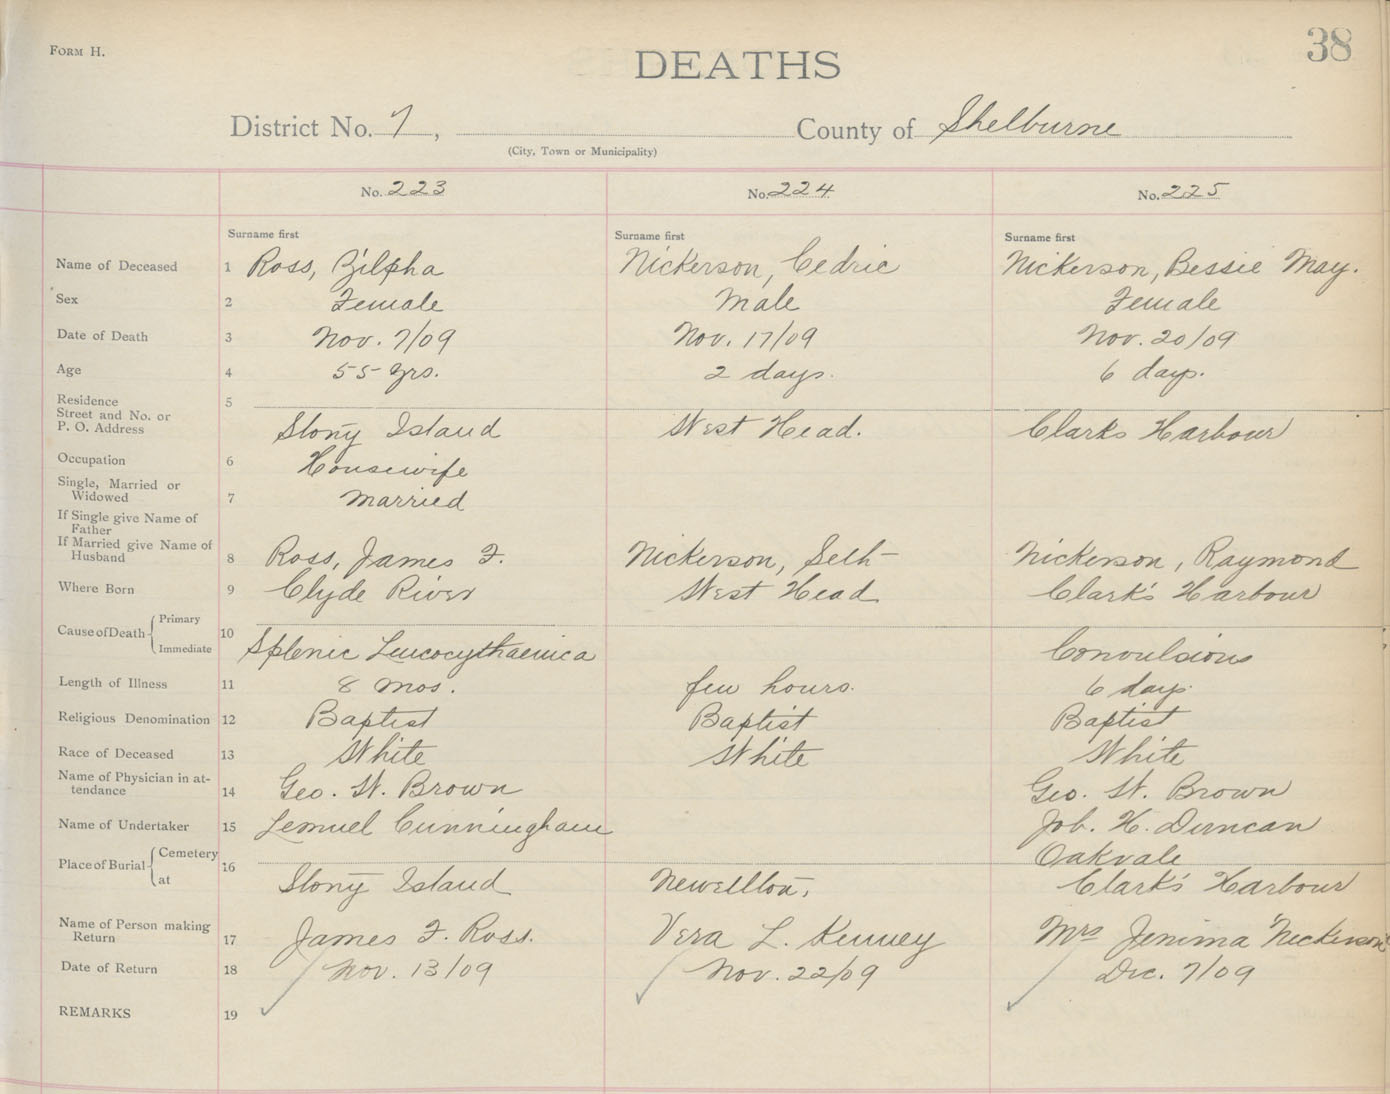 FORM H.
DEATHS
38
District No. 7, County of Shelburne
(City, Town or Municipality)
No. 223 No. 224 No. 225
Surname first Surname first Surname first
Name of Deceased 1 Ross, Zilpha Nickerson, Cedric Nickerson, Bessie May.
Sex 2 Female Male Female
Date of Death 3 Nov. 7/09 Nov. 17/09 Nov. 20/09
Age 4 55 yrs. 2 days. 6 days.
Residence 5
Street and No. or
P. O. Address Stony Island West Head. Clarks Harbour
Occupation 6 Housewife
Single, Married or
Widowed 7 Married
If Single give Name of
Father
If Married give Name of
Husband 8 Ross, James F. Nickerson, Seth Nickerson, Raymond
Where Born 9 Clyde River West Head Clark's Harbour
Cause of Death Primary 10
Immediate Splenic Leucocythaemica Convulsions
Length of Illness 11 8 mos. few hours. 6 days.
Religious Denomination 12 Baptist Baptist Baptist
Race of Deceased 13 White White White
Name of Physician in at-
tendance 14 Geo. W. Brown Geo. W. Brown
Name of Undertaker 15 Lemuel Cunningham Job. H. Duncan
Place of Burial Cemetery 16 Oakvale
at Stony Island Newellton, Clark's Harbour
Name of Person making
Return 17 James F. Ross. Vera L. Kenney Mrs Jemima Nickerson
Date of Return 18 Nov. 13/09 Nov. 22/09 Dec. 7/09
REMARKS 19